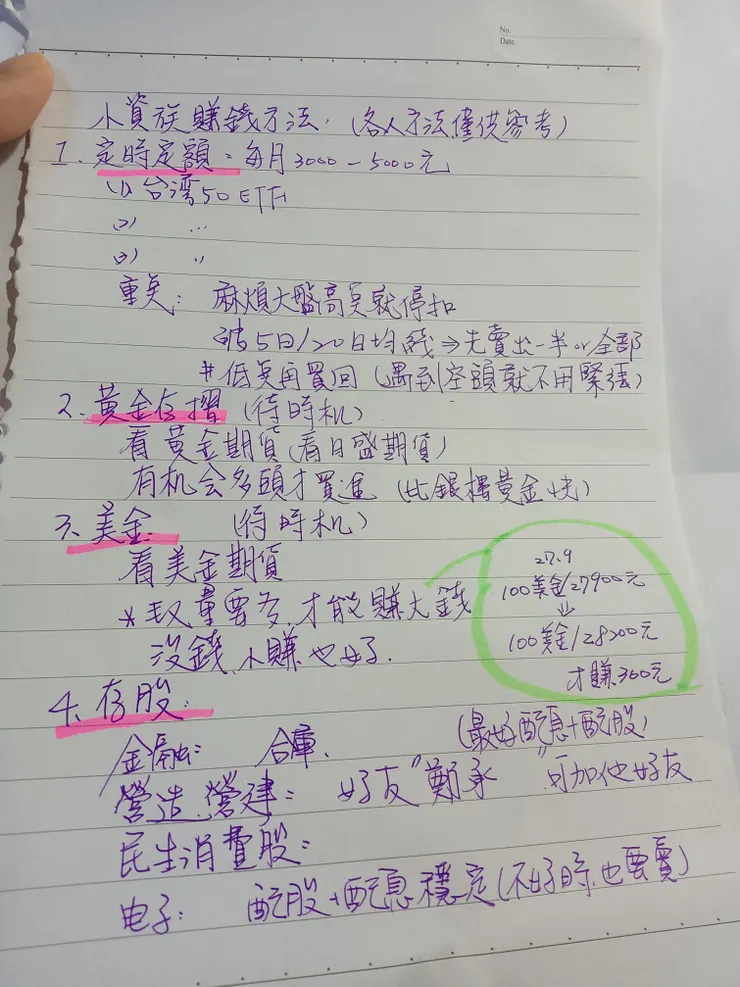 No.
Date.
小資族賺錢方法.（各人方法僅供參考）
1. 定時定額：每月3000－5000元
(1) 台湾50 ETF
(2) ...
(3) 〃
重点：麻煩大盤高点就停扣
破5日/20日均綫⇒先賣出一半or全部
#低点再買回（遇到空頭就不用緊張）
2. 黃金存摺（待時机）
看黃金期貨（看日盛期貨）
有机会多頭才買進（比銀樓黃金快）
3. 美金.（待時机）
看美金期貨
*數量要多，才能賺大錢
沒錢、小賺也好.
27.9
100美金/27900元
⇓
100美金/28200元
才賺300元
4. 存股：
金融：合庫.（最好配息+配股）
營造、營建：好友"鄭承"可加他好友
民生消費股：
电子：配股+配息穩定（不好時、也要賣）